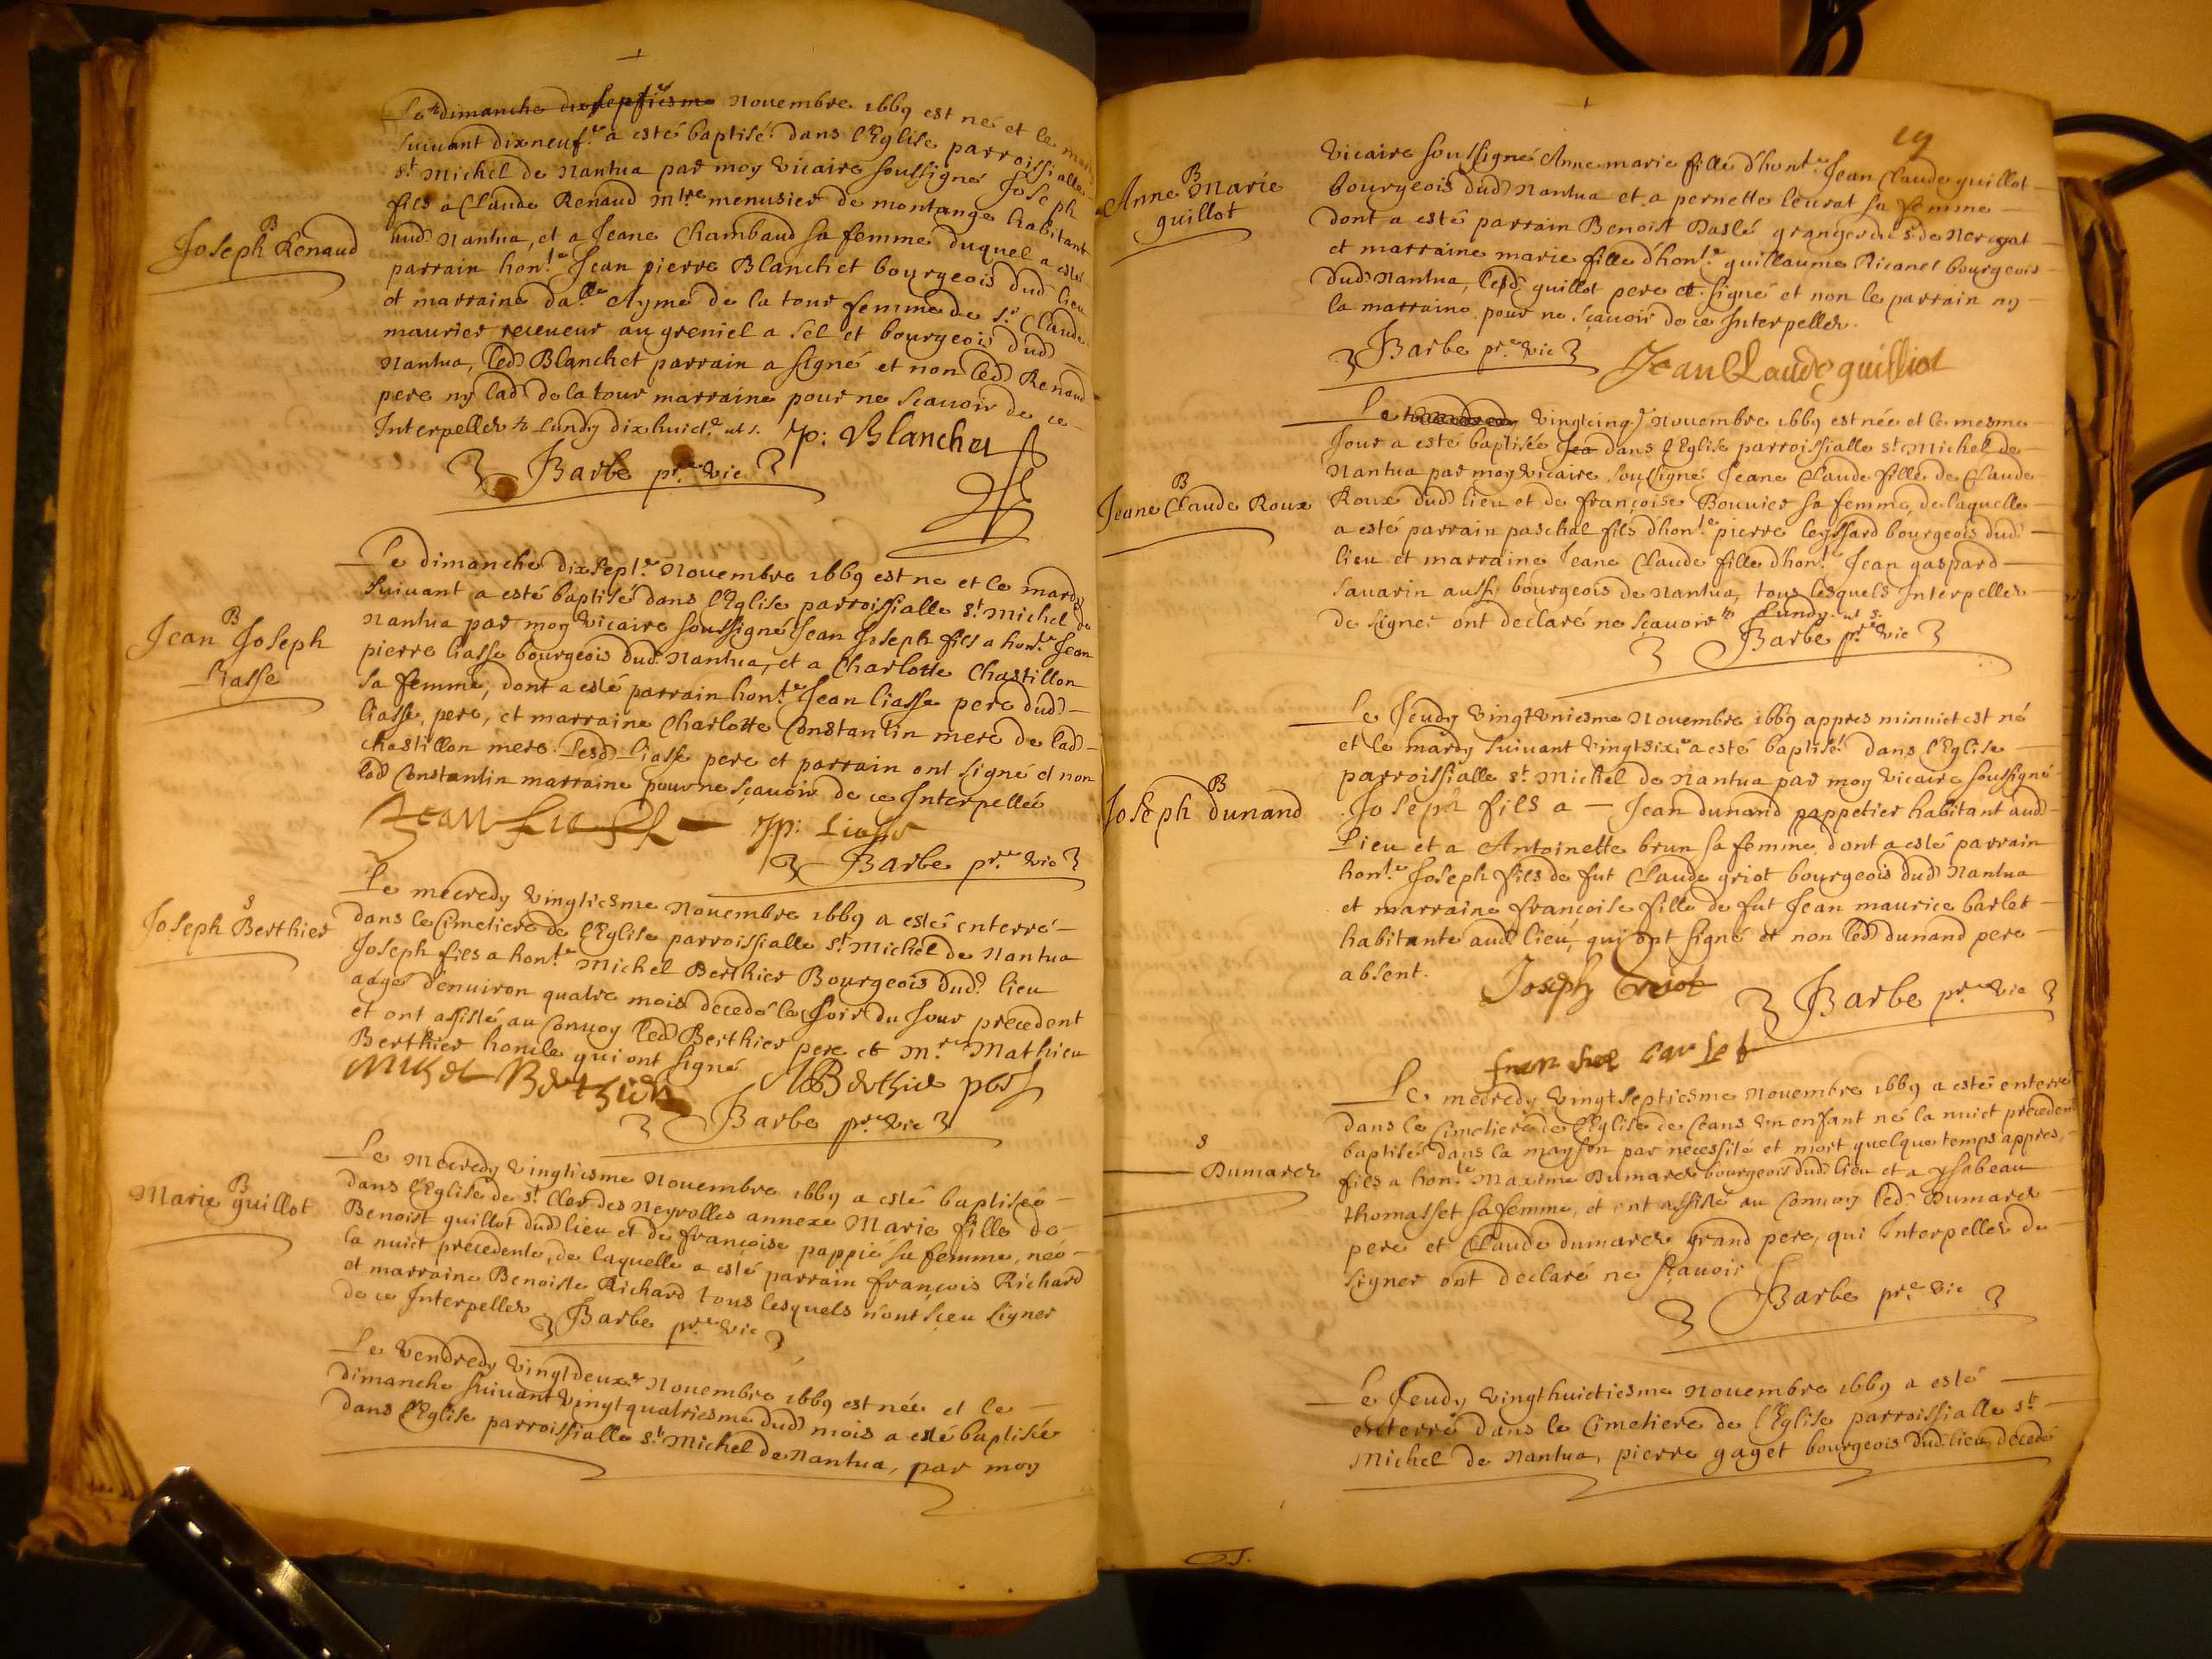 Le dimanche dixseptiesme Nouembre 1669 est né et le mardy
suiuant dixneuf.e a esté baptisé dans l'Eglise parroissialle
st Michel de Nantua par moy vicaire soussigné Joseph
fils a Claude Renaud mtre menusier de montange habitant
aud Nantua, et a Jeane Chambaud sa femme duquel a esté
parrain hon.te Jean pierre Blanchet bourgeois dud lieu
et marraine da.lle Aymé de la tour femme de s.r Claude
maurier receueur au greniel a sel et bourgeois dud
Nantua, led Blanchet parrain a signé et non led Renaud
pere ny lad de la tour marraine pour ne scauoir de ce
Interpeller Lundy dixhuict.e ut s. Jp: Blanchet
Barbe pr.e vic
B
Joseph Renaud
Le dimanche dixsept.e Nouembre 1669 est né et le mardy
suiuant a esté baptisé dans l'Eglise parroissialle st Michel de
Nantua par moy vicaire soussigné Jean Joseph fils a hon.te Jean
pierre liasse bourgeois dud Nantua, et a Charlotte Chastillon
sa femme, dont a esté parrain hon.te Jean liasse pere dud
liasse, pere, et marraine Charlotte Constantin mere de lad
chastillon mere. Lesd Liasse pere et parrain ont signé et non
lad Constantin marraine pour ne sçauoir de ce Interpellée
Jp: Liasse
Barbe pr.e vic
B
Jean Joseph
Liasse
Le mecredy vingtiesme Nouembre 1669 a esté enterré
dans le Cimetiere de l'Eglise parroissialle st Michel de Nantua
Joseph fils a hon.te Michel Berthier Bourgeois dud lieu
aagé d'enuiron quatre mois decedé le soir du Jour precedent
et ont assisté au Conuoy led Berthier pere et M.re Mathieu
Berthier honcle qui ont signé
Michel Berthier M Berthier pbr
Barbe pr.e vic
S
Joseph Berthier
Le Mecredy vingtiesme Nouembre 1669 a esté baptiseé
dans l'Eglise de st Cler des Neyrolles annexe Marie fille de
Benoist guillot dud lieu et de françoise pappie sa femme, neé
la nuict precedente, de laquelle a esté parrain françois Richard
et marraine Benoiste Richard tous lesquels n'ont sçeu signer
de ce Interpeller Barbe pr.e vic
B
Marie guillot
Le vendredy vingtdeux.e Nouembre 1669 est née et le
dimanche suiuant vingtquatriesme dud mois a esté baptisée
dans l'Eglise parroissialle st Michel de Nantua, par moy
vicaire soussigné Anne marie fille d'hon.te Jean Claude guillot
bourgeois dud Nantua et a pernette leurat sa femme
dont a esté parrain Benoist granger du s.r de
et marraine marie fille d'hon.te guillaume bourgeois
dud Nantua, led guillot pere a signé et non le parrain ny
la marraine pour ne sçauoir de ce Interpeller.
Barbe pr.e vic Jean Claude guilliot
B
Anne Marie
guillot
Le vingtcinq.e Nouembre 1669 est née et le mesme
Jour a esté baptisée dans l'Eglise parroissialle st Michel de
Nantua par moy vicaire soussigné Jeane Claude fille de Claude
Roux dud lieu et de françoise Bouuier sa femme, de laquelle
a esté parrain paschal fils d'hon.te pierre leyssard bourgeois dud
lieu et marraine Jeane Claude fille d'hon.te Jean gaspard
sauarin aussy bourgeois de Nantua, tous lesquels Interpeller
de signer ont declaré ne sçauoir Lundy ut s.
Barbe pr.e vic
B
Jeane Claude Roux
Le Jeudy vingtvniesme Nouembre 1669 appres minuict est né
et le mardy suiuant vingtsixi.e a esté baptisé dans l'Eglise
parroissialle st Michel de Nantua par moy vicaire soussigné
Joseph fils a Jean dunand pappetier habitant aud
Lieu et a Antoinette brun sa femme, dont a esté parrain
hon.te Joseph fils de fut Claude griot bourgeois dud Nantua
et marraine françoise fille de fut Jean maurice barlet
habitante aud lieu, qui ont signé et non led dunand pere
absent.
Joseph Griot
Barbe pr.e vic
B
Joseph dunand
Le mecredy vingtseptiesme Nouembre 1669 a esté enterré
dans le Cimetiere de l'Eglise de Ceans vn enfant né la nuict precedent
baptisé dans la mayson par necessité et mort quelque temps appres,
fils a hon.te Maxime Dumarer bourgeois dud lieu et a ysabeau
thomasset sa femme, et ont assisté au Conuoy led Dumarer
pere et Claude dumarer grand pere, qui Interpeller de
signer ont declaré ne sçauoir
Barbe pr.e vic
S
Dumarer
Le Jeudy vingthuictiesme Nouembre 1669 a esté
enterré dans le Cimetiere de l'Eglise parroissialle st
Michel de Nantua, pierre gaget bourgeois dud lieu, decedé